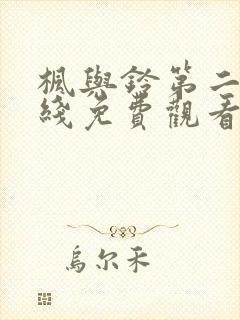 楓與鈴第二
綫免費觀看
烏尔禾